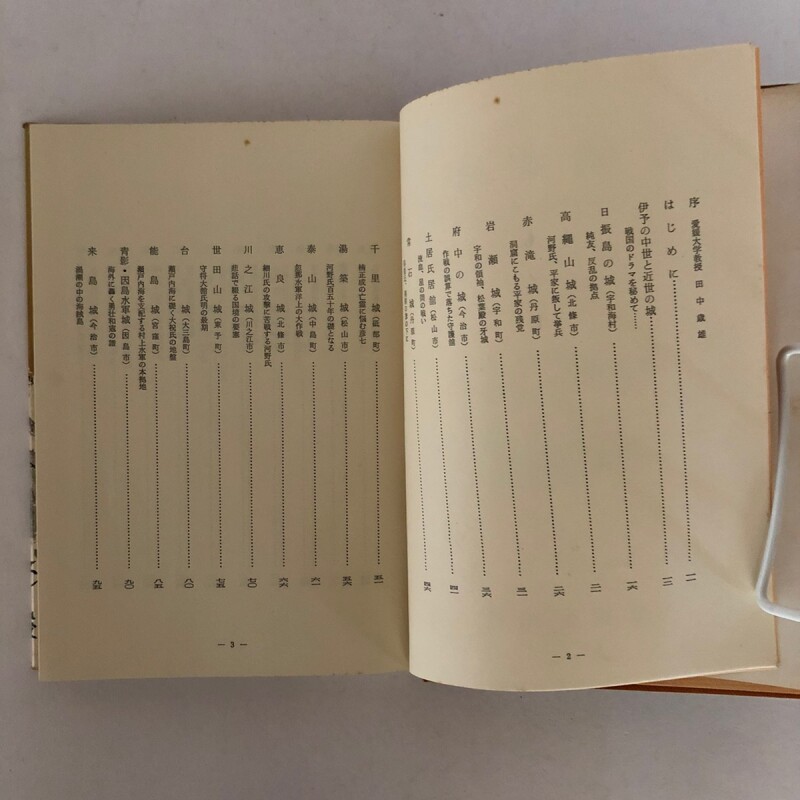 序　愛媛大学教授　田中歳雄……一一
はじめに……一二
伊予の中世と近世の城……一六
戦国のドラマを秘めて……
日振島の城（宇和海村）……二一
純友、反乱の拠点
高縄山城（北條市）……二六
河野氏、平家に叛して挙兵
赤滝城（丹原町）……三一
洞窟にこもる平家の残党
岩瀬城（宇和町）……三六
宇和の領袖、松葉殿の牙城
府中の城（今治市）……四一
作戦の誤算で落ちた守護館
土居氏居館（松山市）……四六
城（丹原町）
— 2 —
千里城（砥部町）……五一
楠正成の亡霊に悩む彦七
湯築城（松山市）……五六
河野氏百五十年の礎となる
泰山城（中島町）……六一
忽那水軍洋上の大作戦
恵良城（北條市）……六六
細川氏の攻撃に苦戦する河野氏
川之江城（川之江市）……七〇
悲話で綴る国境の要塞
世田山城（東予町）……七五
守将大館氏明の最期
台城（大三島町）……八〇
瀬戸内海に轟く大祝氏の地盤
能島城（宮窪町）……八五
瀬戸内海を支配する村上水軍の本拠地
青影・因島水軍城（因島市）……九〇
海外に轟く勇壮和寇の譜
来島城（今治市）……九五
渦潮の中の海賊島
— 3 —